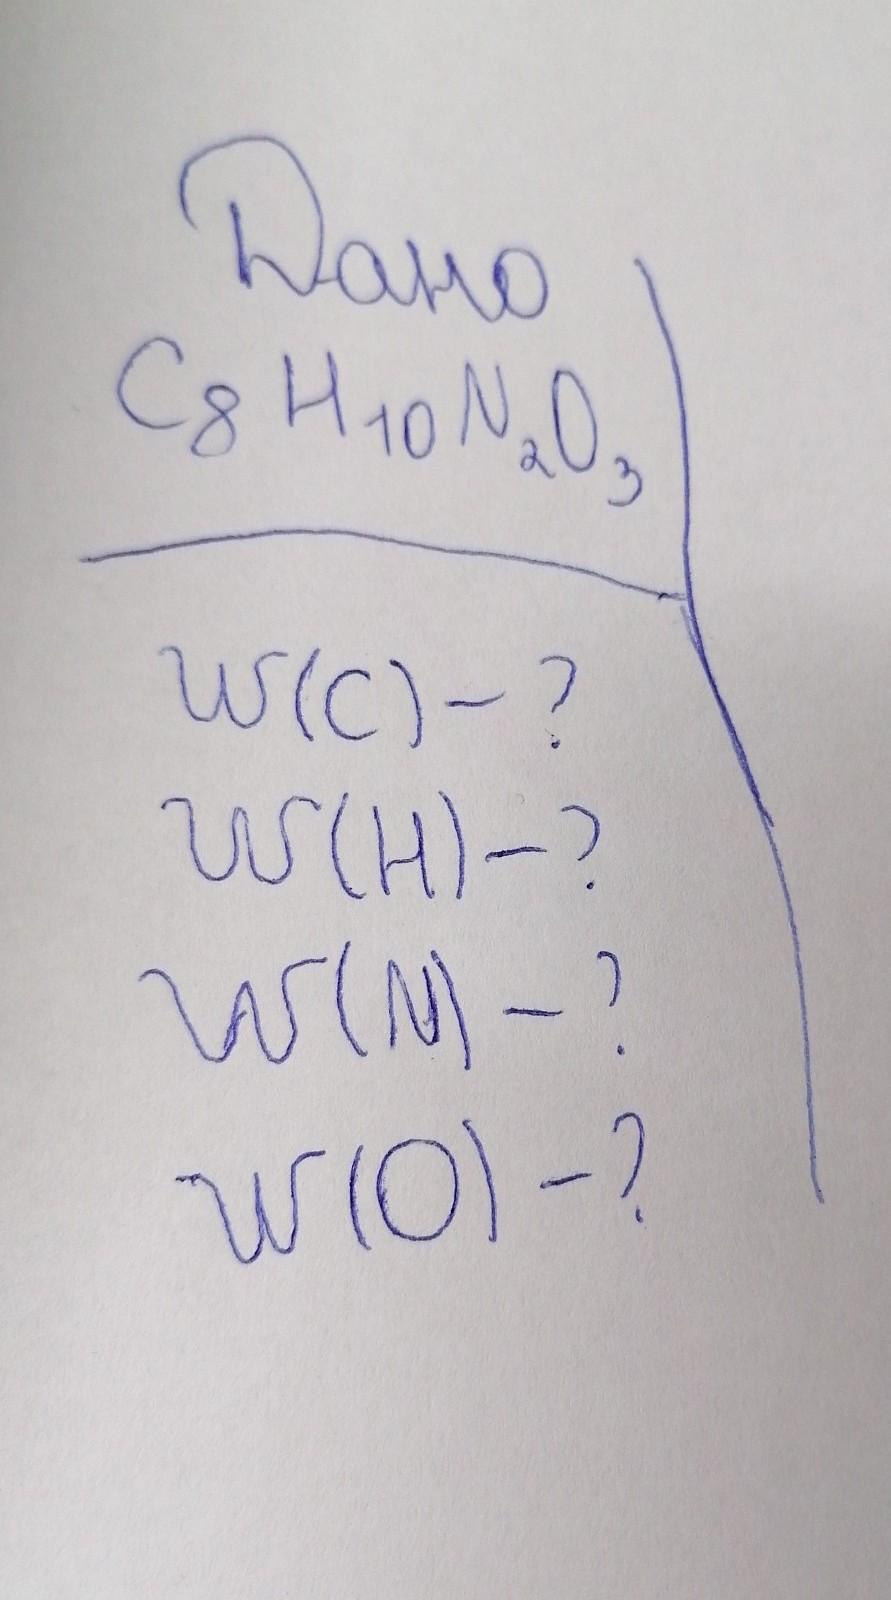 Дано
C₈H₁₀N₂O₃
W(C) - ?
W(H) - ?
W(N) - ?
W(O) - ?